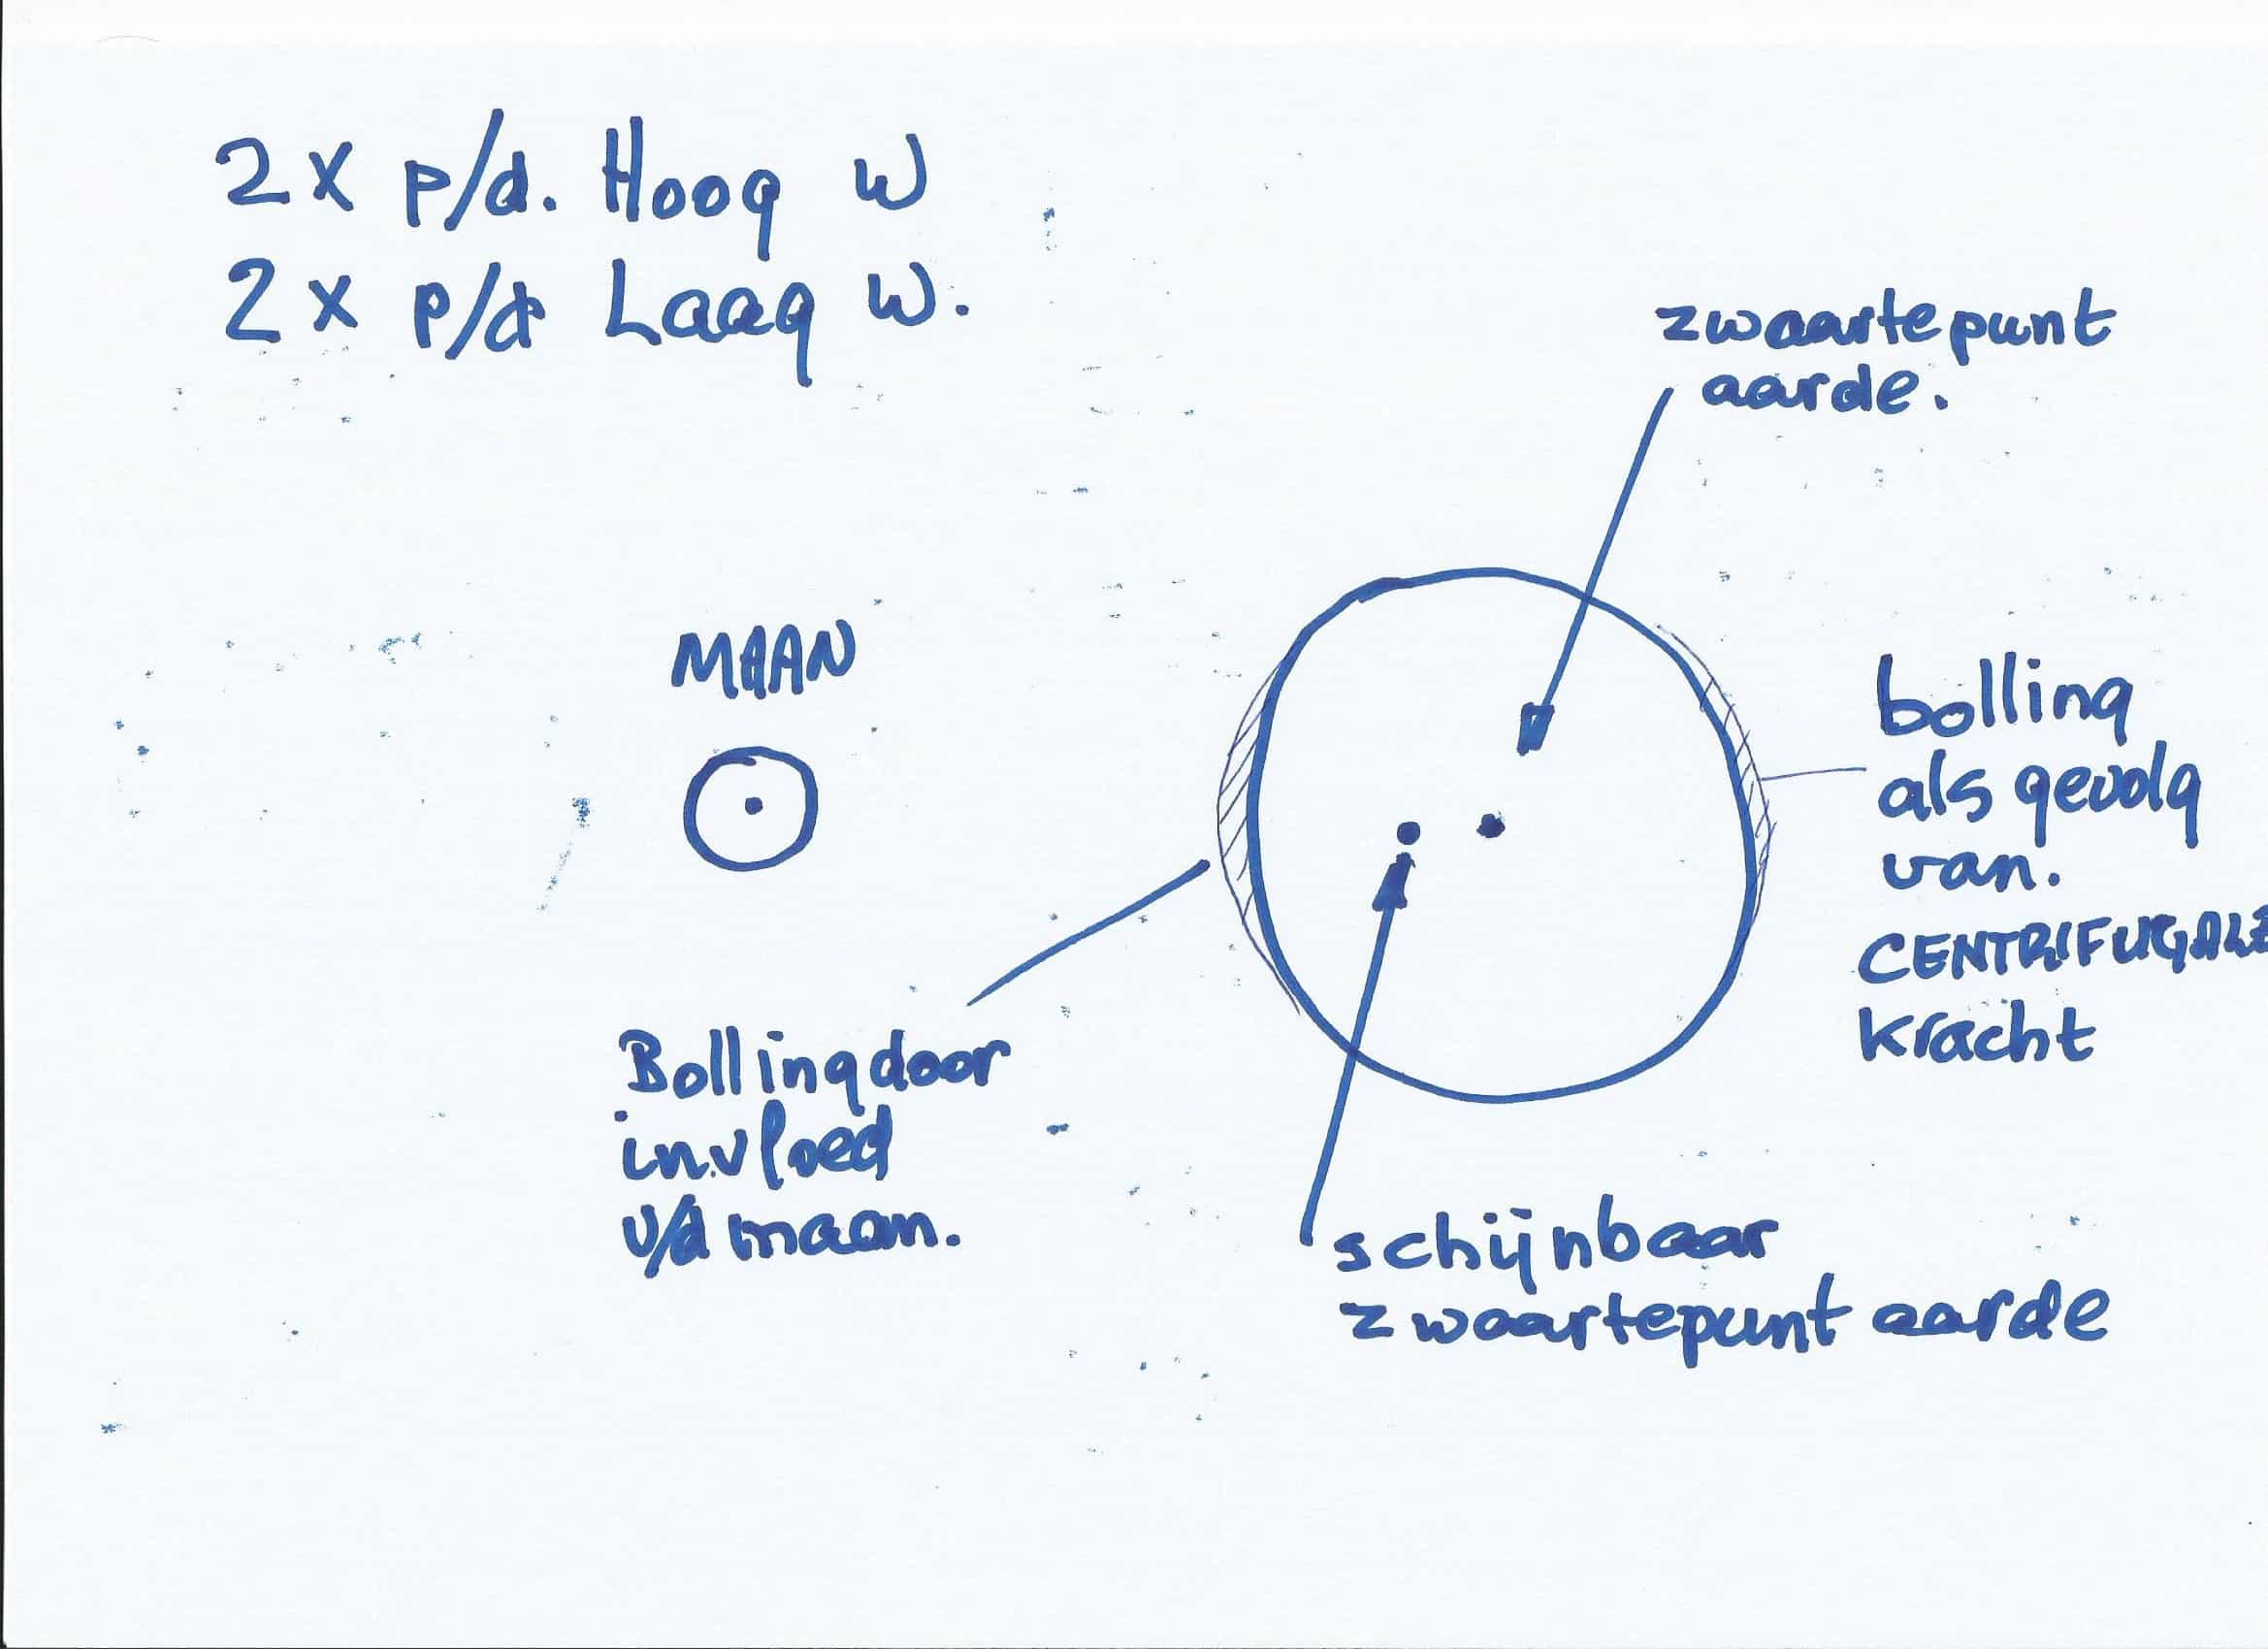 2x p/d. Hoog W
2x p/d Laag W.
zwaartepunt
aarde.
MAAN
bolling
als gevolg
van.
CENTRIFUGALE
kracht
Bolling door
invloed
v/d maan.
schijnbaar
zwaartepunt aarde